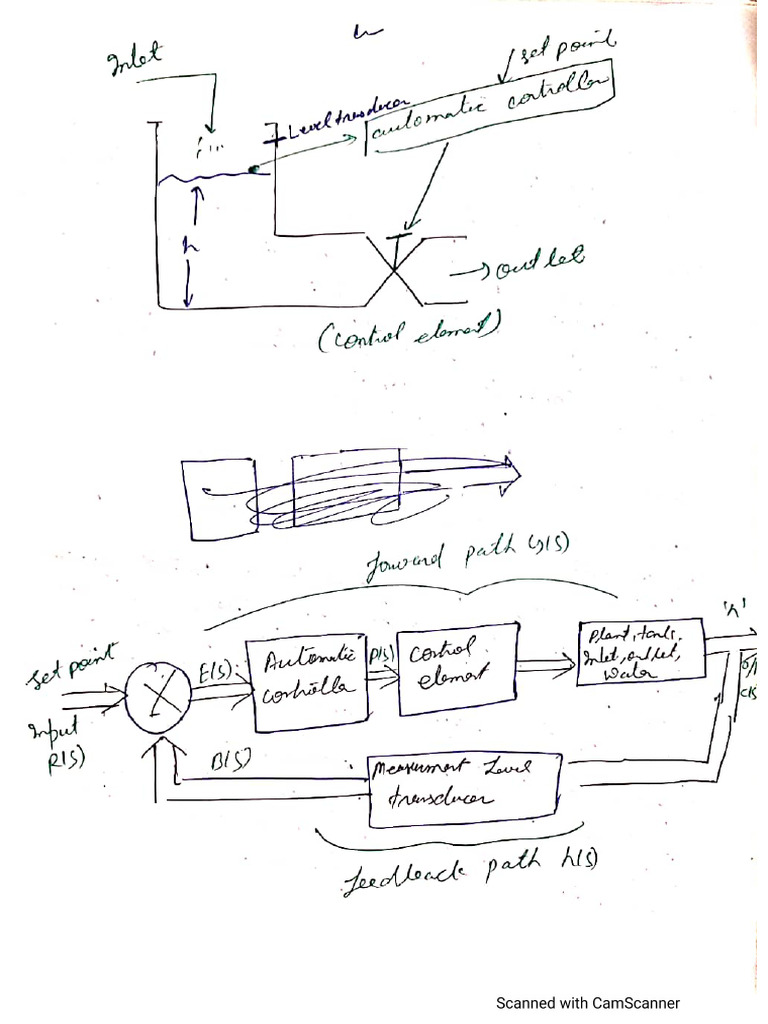 Inlet
set point
Level trusducer
automatic cortroller
h
outlet
(control element)
forward path G(S)
'h'
Set point
E(S)
Automatic
controller
P(S)
Cortrol
element
Plant, tank,
Inlet, outlet,
water
O/P
C(S)
Input
R(S)
B(S)
Measurment Level
transducer
feedback path h(S)
Scanned with CamScanner